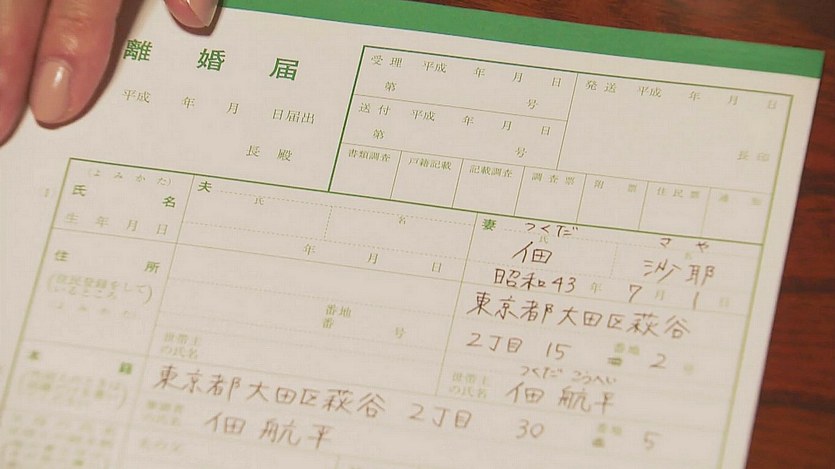 離婚届
平成 年 月 日届出
長 殿
受理 平成 年 月 日
第 号
発送 平成 年 月 日
送付 平成 年 月 日
第 号
長印
書類調査 戸籍記載 記載調査 調査票 附 票 住民票 通 知
(よみかた)
氏 名
夫 氏 名
妻 つくだ 氏 佃
さや 沙耶
生 年 月 日
年 月 日
昭和43年 7月 1日
住 所
(住民登録をしているところ)
よみかた
番地
番 号
東京都大田区萩谷
2丁目 15 番地 2 号
世帯主の氏名
世帯主の氏名 つくだ こうへい
佃 航平
本
東京都大田区萩谷 2丁目 30 番地 5
筆頭者の氏名 佃 航平